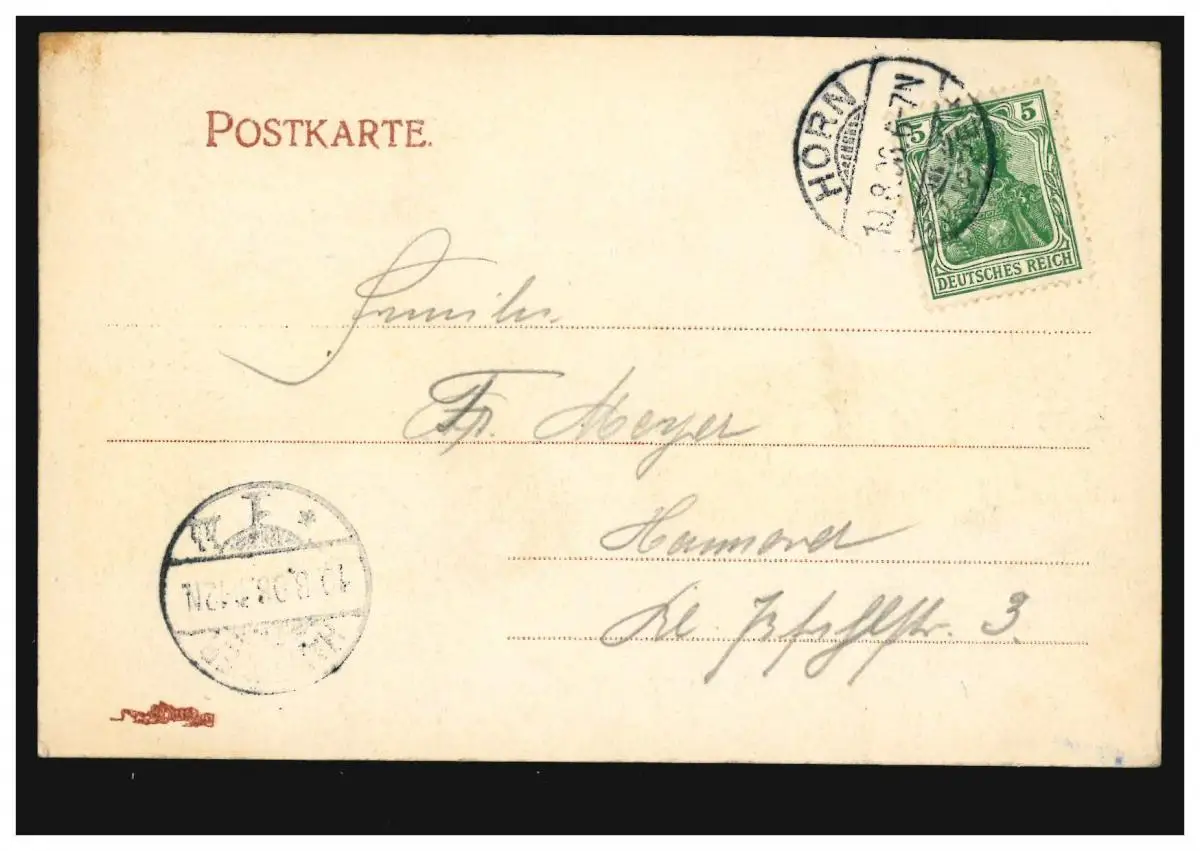 POSTKARTE.
HORN
10.8.  6-7N
5 5
DEUTSCHES REICH
Familie
Fr. Meyer
Hannover
Kl. Pfahlstr. 3.